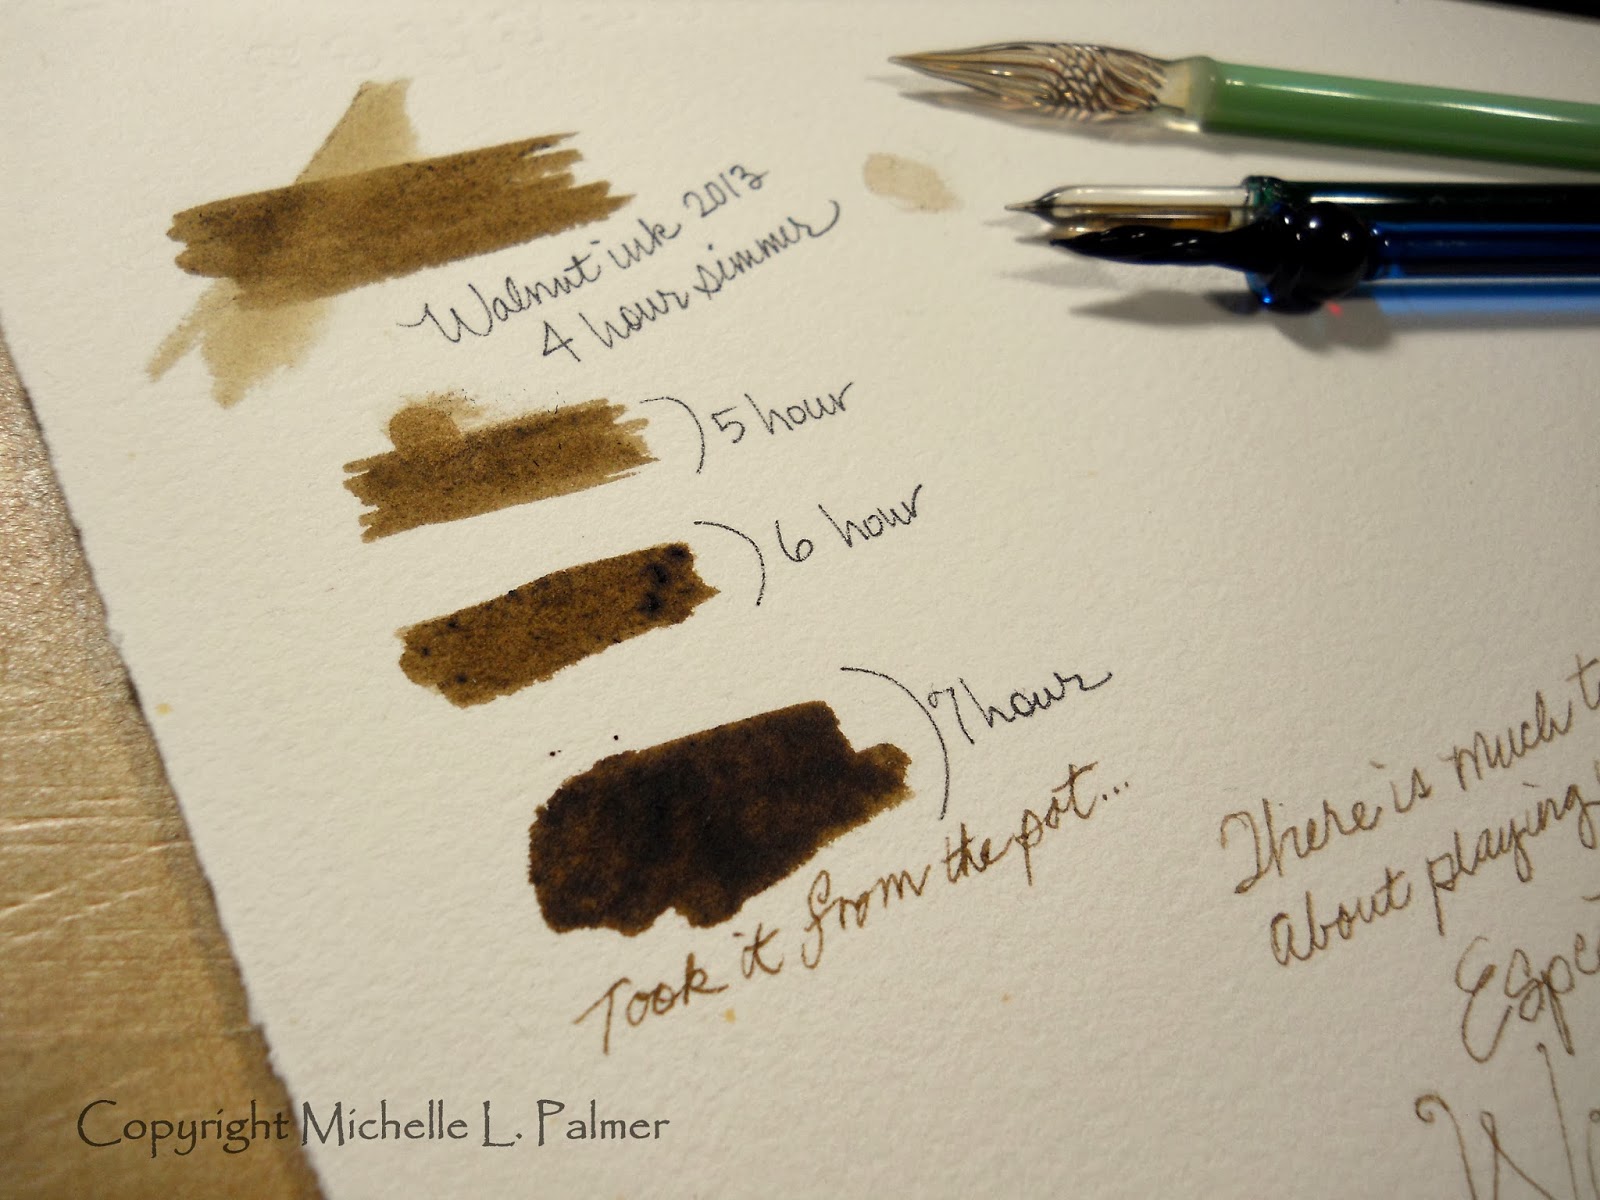 Walnut ink 2013
4 hour simmer
5 hour
6 hour
7 hour
Took it from the pot...
There is much
About playing
Copyright Michelle L. Palmer